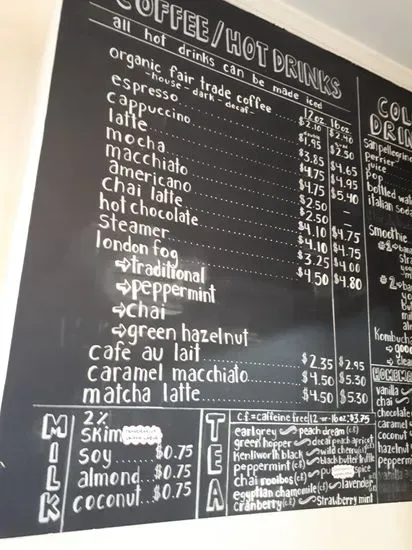 COFFEE/HOT DRINKS
all hot drinks can be made iced
12 oz. 16 oz.
organic fair trade coffee $2.10 $2.40
-house-dark-decaf-
espresso $1.95 $2.50
cappuccino $3.85 $4.65
latte $4.75 $4.95
mocha $4.75 $5.40
macchiato $2.50 –
americano $2.50
chai latte $4.10 $4.75
hot chocolate
steamer $3.25 $4.00
london fog $4.50 $4.80
⇨traditional
⇨peppermint
⇨chai
⇨green hazelnut
café au lait $2.35 $2.95
caramel macchiato $4.50 $5.30
matcha latte $4.50 $5.30
MILK
2%
skim
soy $0.75
almond $0.75
coconut $0.75
TEA
c.f.=caffeine free 12-or-16oz. $3.75
earl grey peach dream (c.f)
green hopper decaf peach apricot
kenilworth black wild cherry (c.f)
peppermint (c.f) black butter truffle
chai rooibos (c.f) spice
egyptian chamomile (c.f) lavender
cranberry (c.f) strawberry mint
COL
DRIN
san pellegrin
perrier
juice
pop
bottled wat
italian sod
smoothie
#1
#2
kombucha
HOMEMA
vanilla
chai
chocolate
caramel
coconut
hazelnut
pepperm